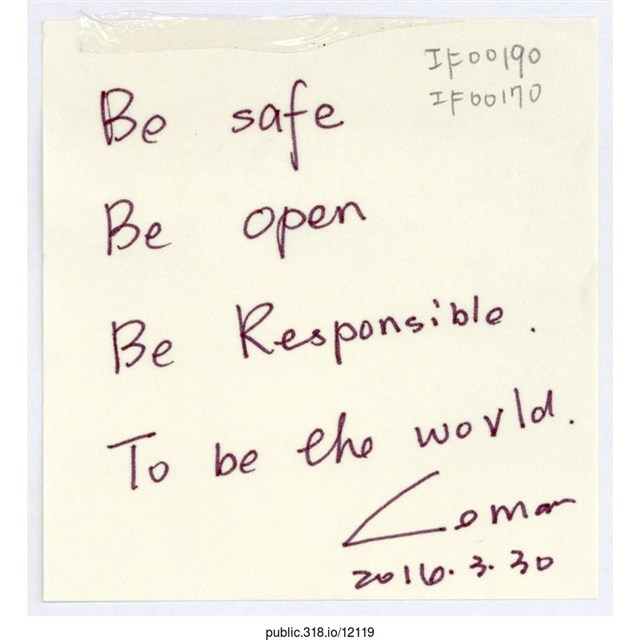 IF00190
IF00170
Be safe
Be open
Be Responsible.
To be the world.
Loman
2016.3.30
public.318.io/12119